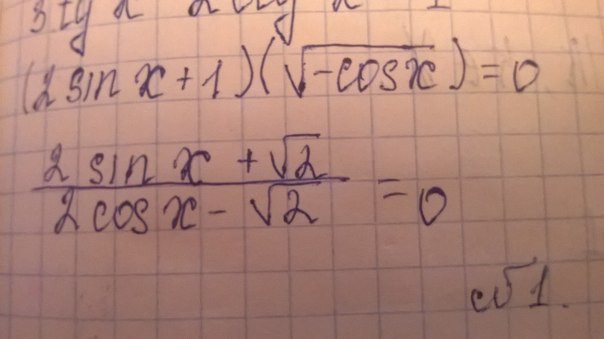 (2 sin x + 1)(√-cos x) = 0
2 sin x + √2
2 cos x - √2
= 0